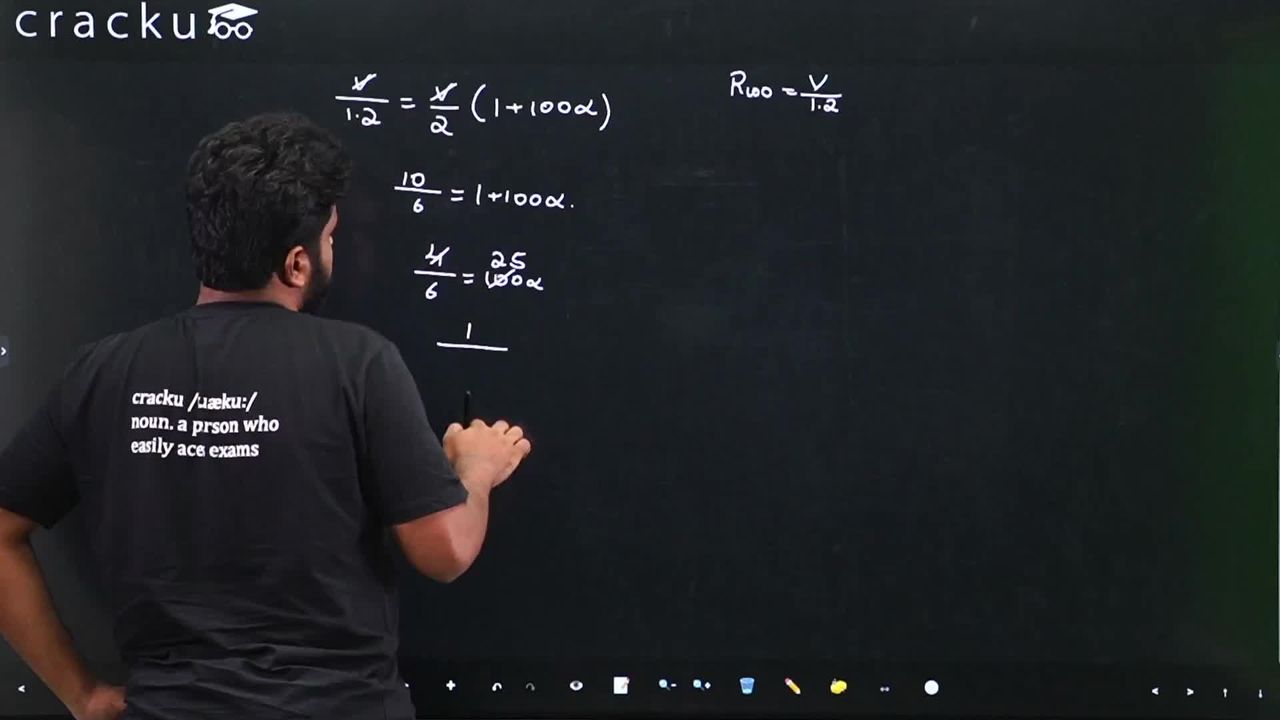 cracku
V/1.2 = V/2 (1+100α)
R100 = V/1.2
10/6 = 1+100α.
25
4/6 = 100α
1
cracku /ɹæku:/
noun. a prson who
easily aces exams